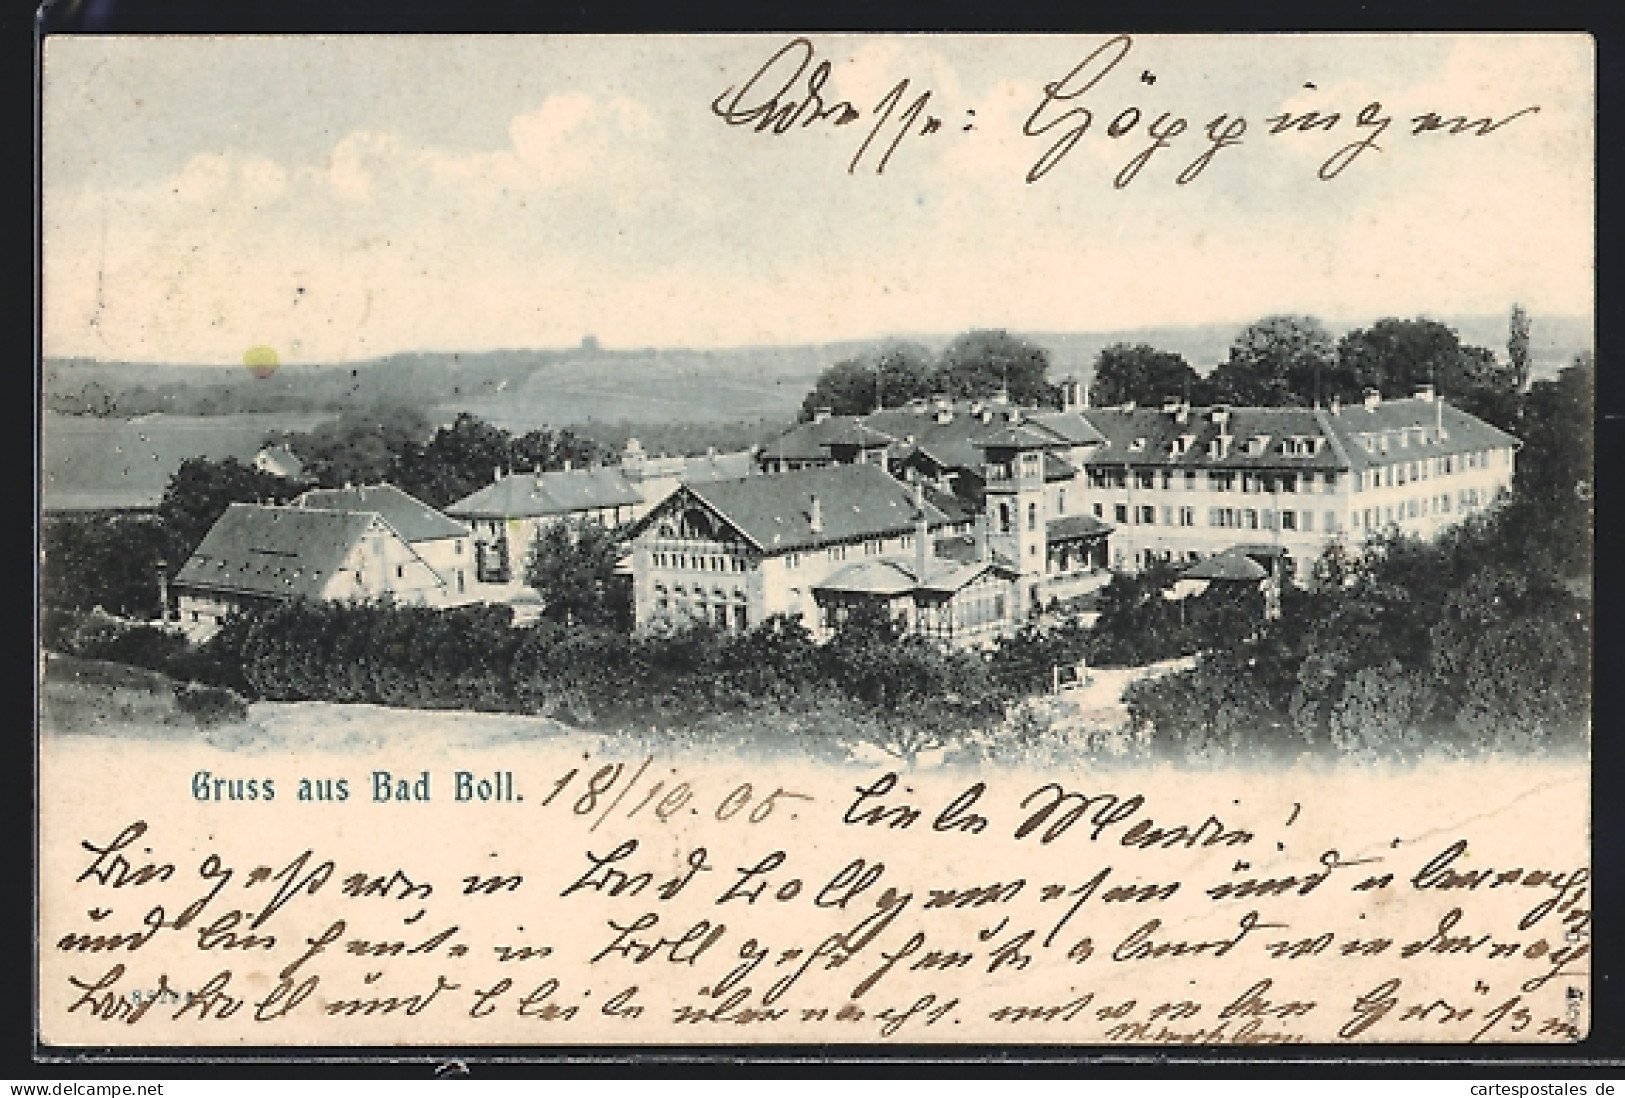 Adresse: Göppingen
Gruss aus Bad Boll. 18/10.05. Liebe Marie!
Bin gestern in Bad Boll gewesen und übernacht
und bin heute in Boll gehe heute abend wieder nach
Bad Boll und bleibe übernacht. mit lieben Grüßen
cartespostales de